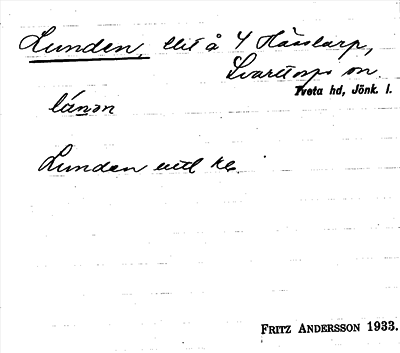 Lunden, tlt å 4 Hässtarp,
Svarttorps sn.
Tveta hd, Jönk. l.
lánən
Lunden enl kb.
FRITZ ANDERSSON 1933.